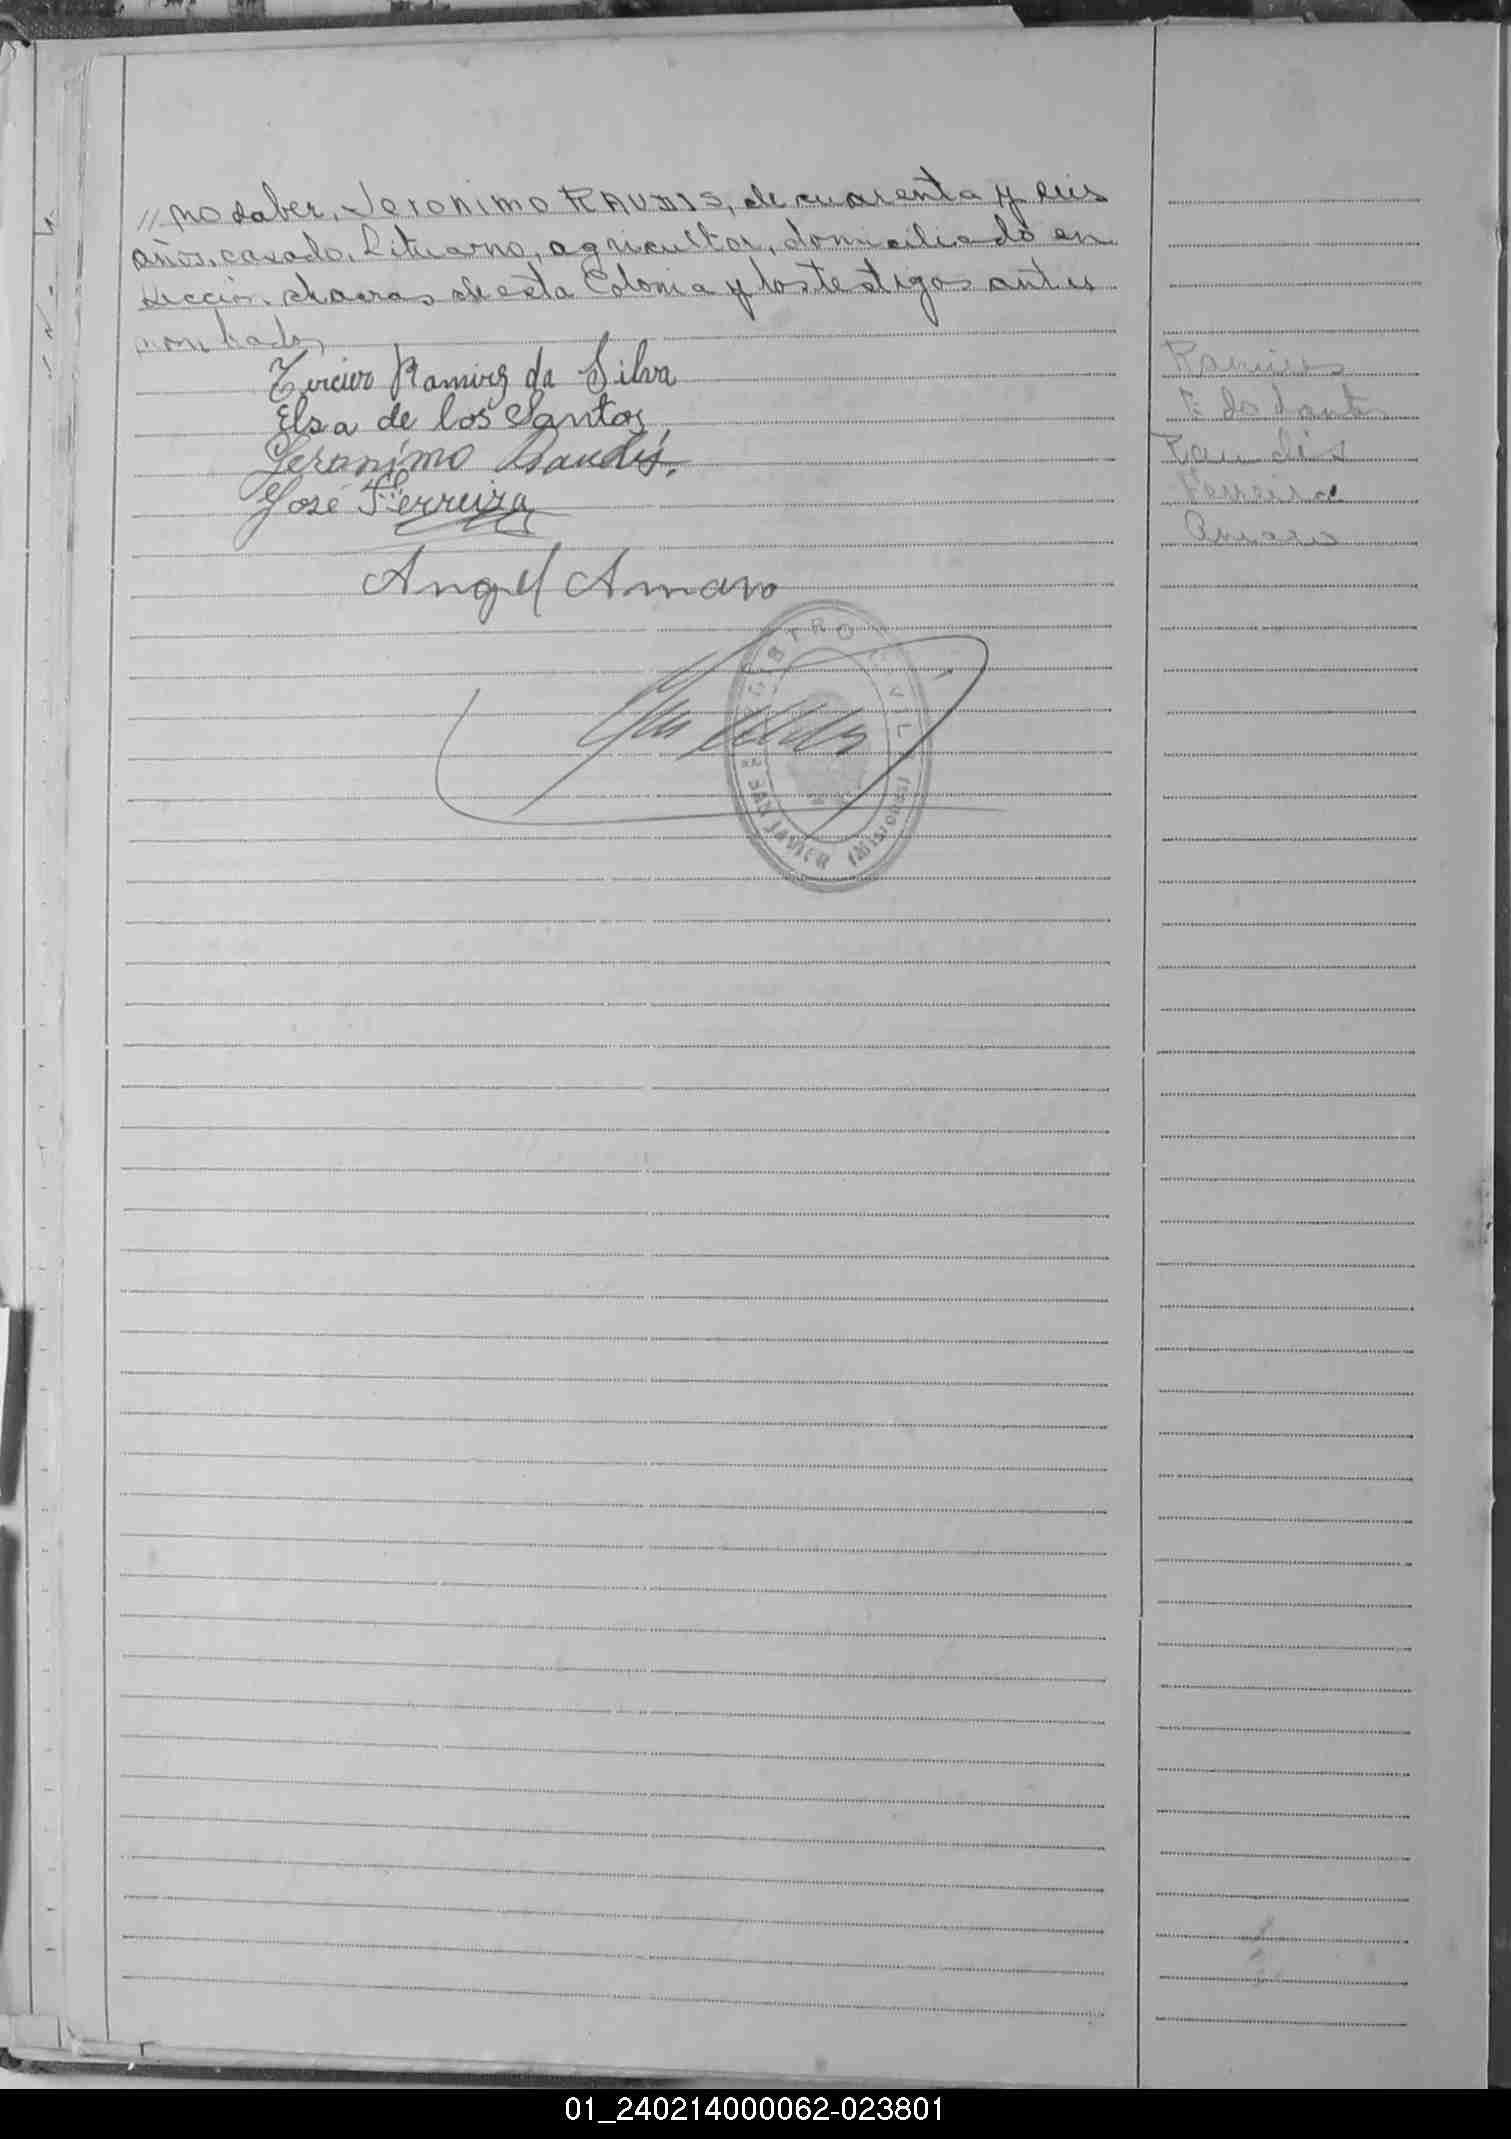 // no saber, Jeronimo RAUDIS, de cuarenta y seis
años, casado, Lituano, agricultor, domiciliado en
Sección chacras de esta Colonia y los testigos antes
nombrados
Tercirio Ramirez da Silva
Elsa de los Santos
Geronimo Raudis.
José Ferreira
Angel Amaro
REGISTRO CIVIL
SAN JAVIER (Misiones)
Ramirez
E. do Santos
Raudis
Ferreira
Amaro
01_240214000062-023801